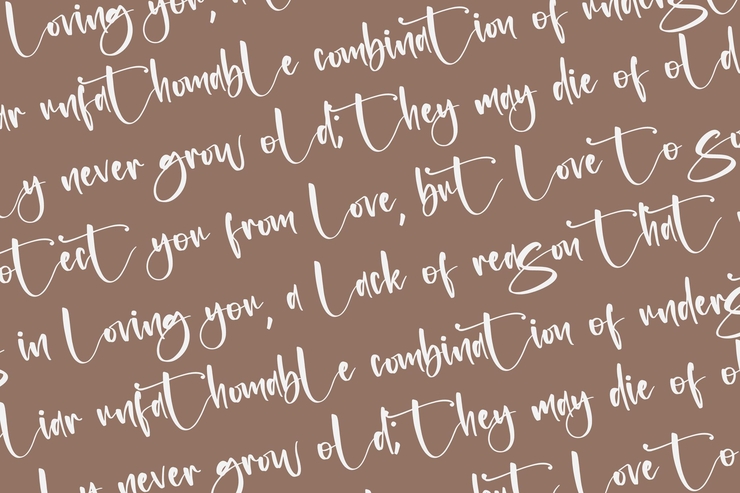 Loving you, a
unfathomable combination of
never grow old; they may die of old
you from love, but love to
in loving you, a lack of reason that
liar unfathomable combination of
never grow old; they may die of
love to